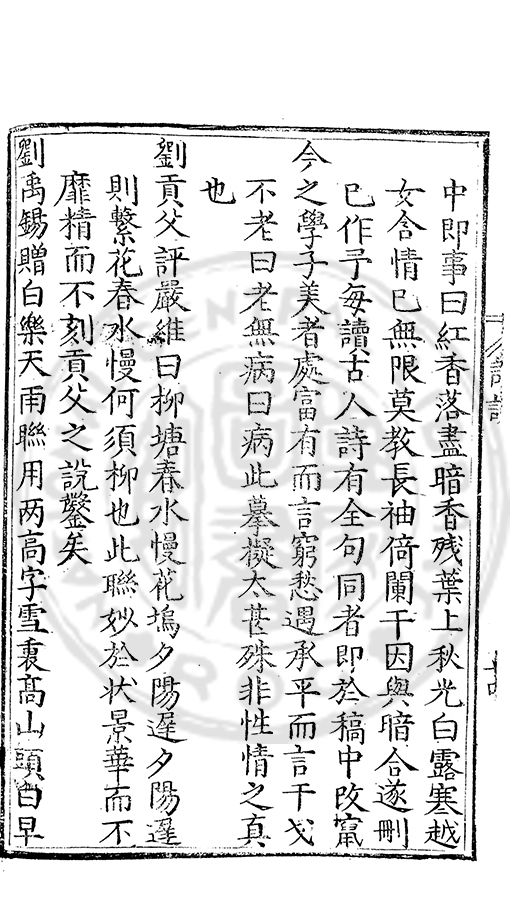 中即事曰紅香落盡暗香殘葉上秋光白露寒越
女含情已無限莫教長袖倚闌干因與暗合遂刪
已作予每讀古人詩有全句同者即於稿中改竄
今之學子美者處富有而言窮愁遇承平而言干戈
不老曰老無病曰病此摹擬太甚殊非性情之真
也
劉貢父評嚴維曰柳塘春水慢花塢夕陽遲夕陽遲
則繫花春水慢何須柳也此聯妙於狀景華而不
靡精而不刻貢父之說鑿矣
劉禹錫贈白樂天兩聯用两高字雪裏高山頭白早